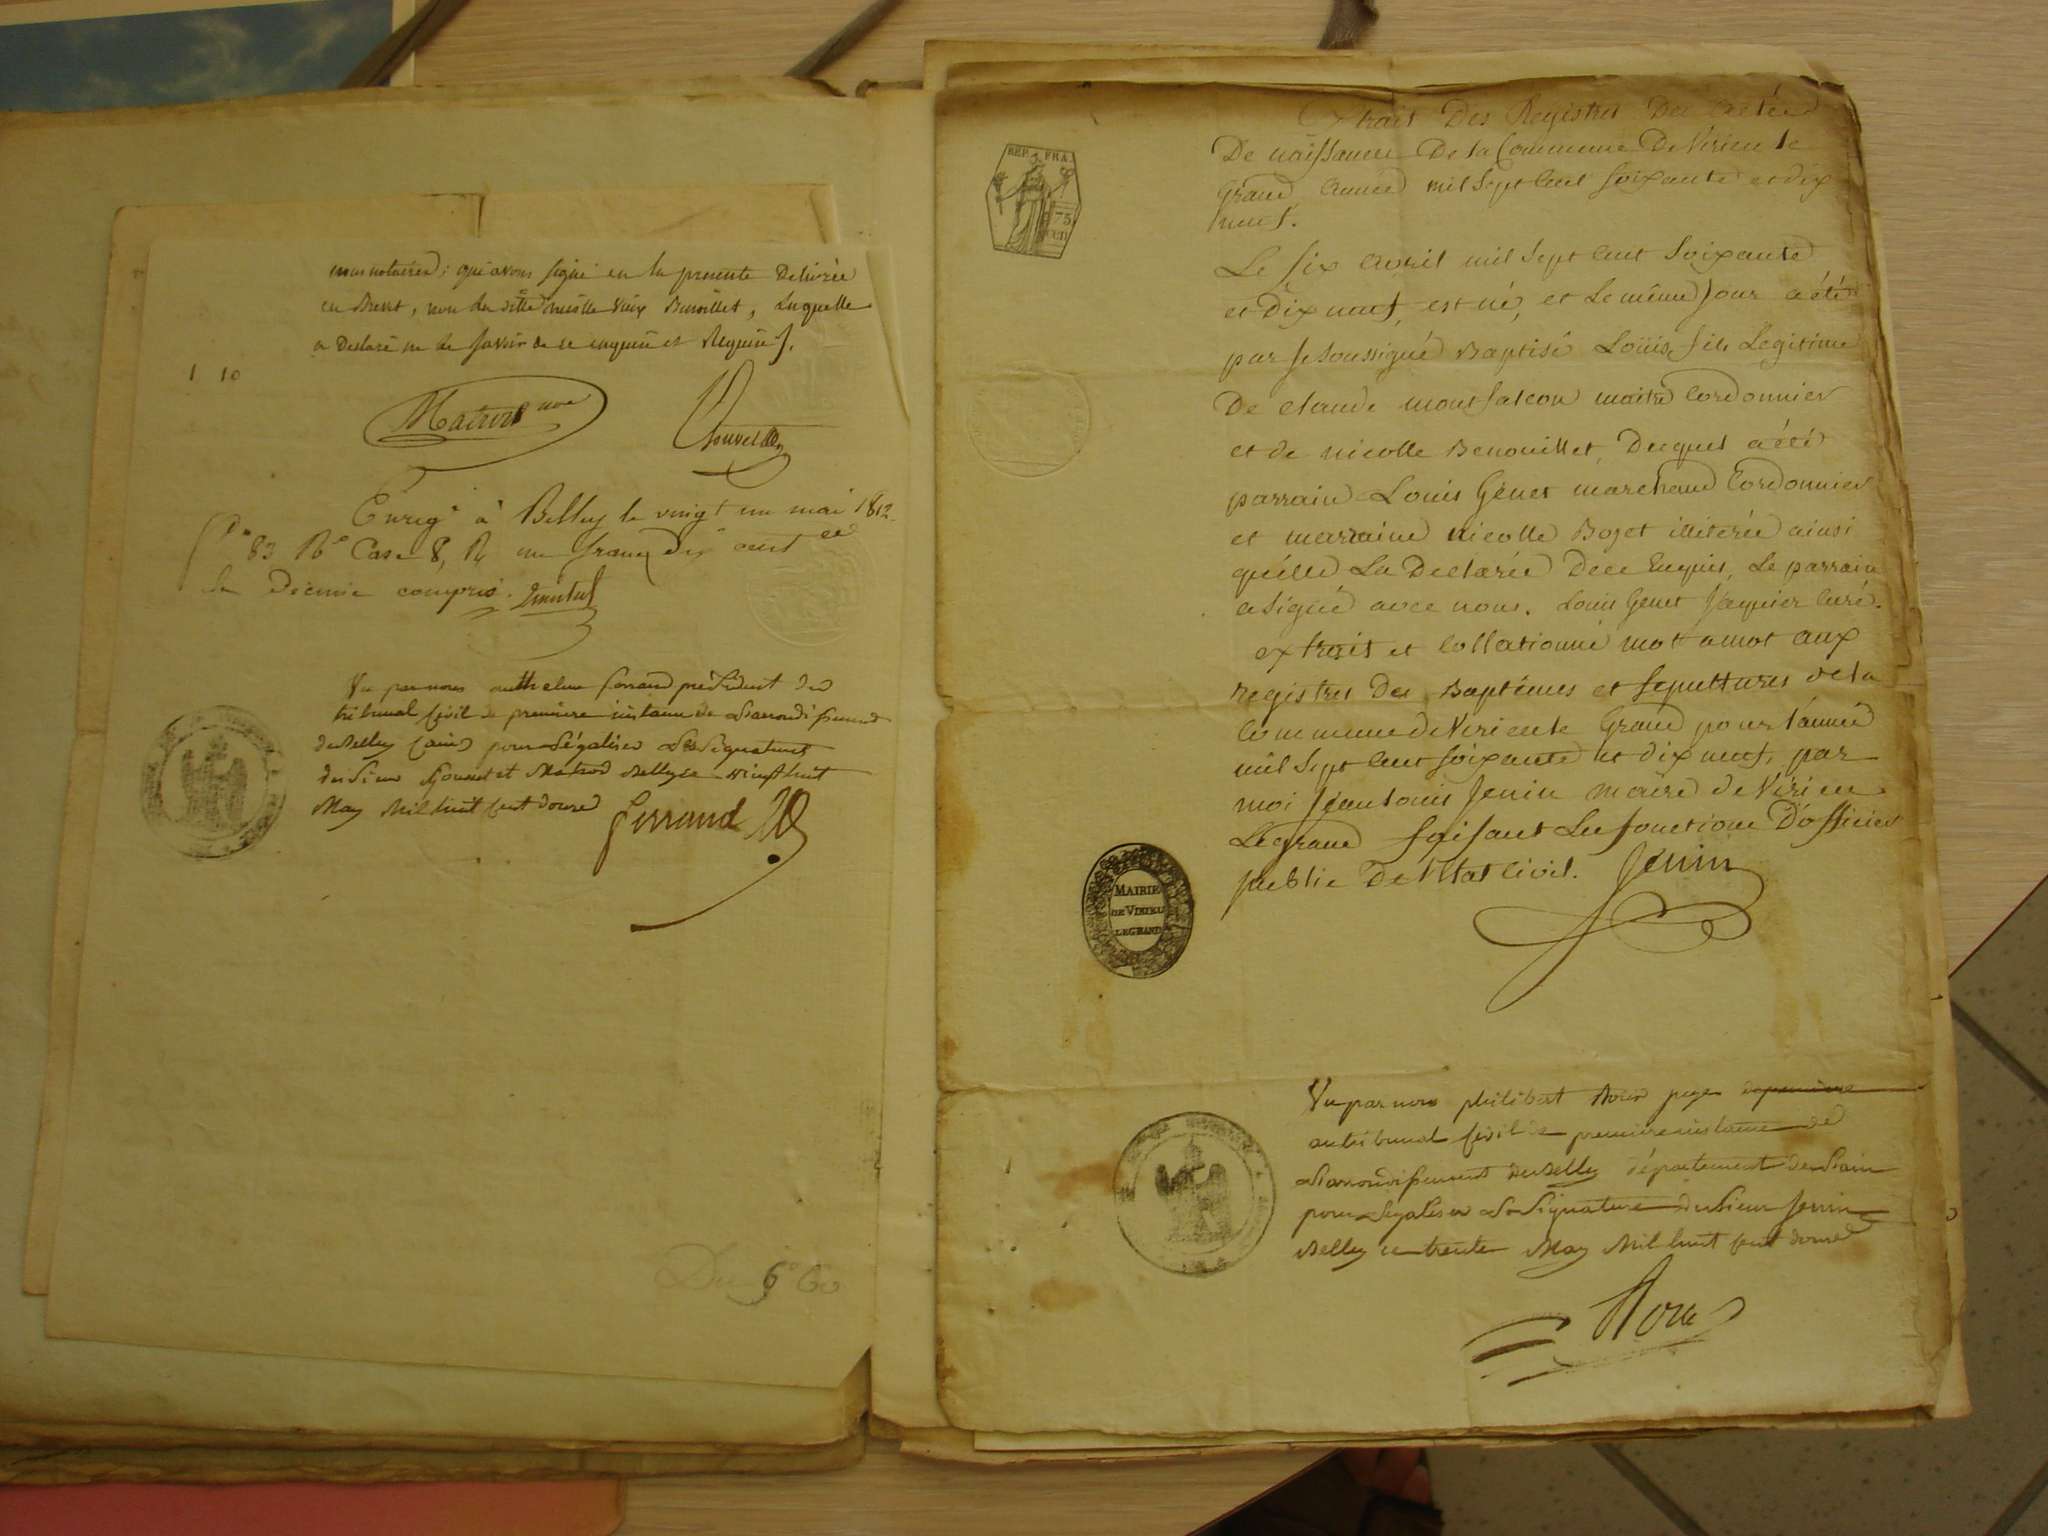 nous notaires; qui avons signé en la presente Delivrée
en Brevet, non la ditte nicolle Benoillet, Laquelle
a Declaré ne le savoir de ce enquise et Requise.
1 10
Matrod nre
Enregé à Belley le vingt un mai 1812
fo 83 Ro Case 8, R un franc dix cent
le Decime compris.
Vu par nous anthelme ferrand président du
tribunal civil de premiere instance de L'arrondissement
de Belley (ain) pour Légaliser Les Signatures
des Sieurs et Matrod Belley ce vingt huit
May Mil huit cent douze ferrand
Du 6
REP. FRA.
75
CEN
Extrait Des Registres Des Actes
De naissance De la Commune De Virieu le
Grand Année mil Sept Cent soixante et dix
neuf.
Le six Avril mil sept cent Soixante
et Dix neuf, est né, et Le même Jour a été
par Je Soussigné Baptisé Loüis, fils Legitime
De claude montfalcon maitre Cordonnier
et de nicolle Benouillet, Duquel a été
parrain Louis Genet marchand Cordonnier
et marraine nicolle Bozet illiterée ainsi
qu'elle La Declarée De ce Enquis, Le parrain
a signé avec nous. Louis Genet Jaquier Curé.
extrait et Collationné mot a mot aux
registres Des Baptêmes et sepultures de la
Commune de Virieu le Grand pour l'année
mil Sept Cent soixante et dix neuf, par
moi Jean Louis Jenin maire de Virieu
Le Grand faisant Les fonctions D'officier
public De l'Etat Civil. Jenin
MAIRIE
DE VIRIEU
LE GRAND
Vu par nous philibert Roux juge de premiere
au tribunal civil de premiere instance de
L'arrondissement de Belley département de L'ain
pour Légaliser La Signature du Sieur Jenin
Belley ce trente May Mil huit cent douze